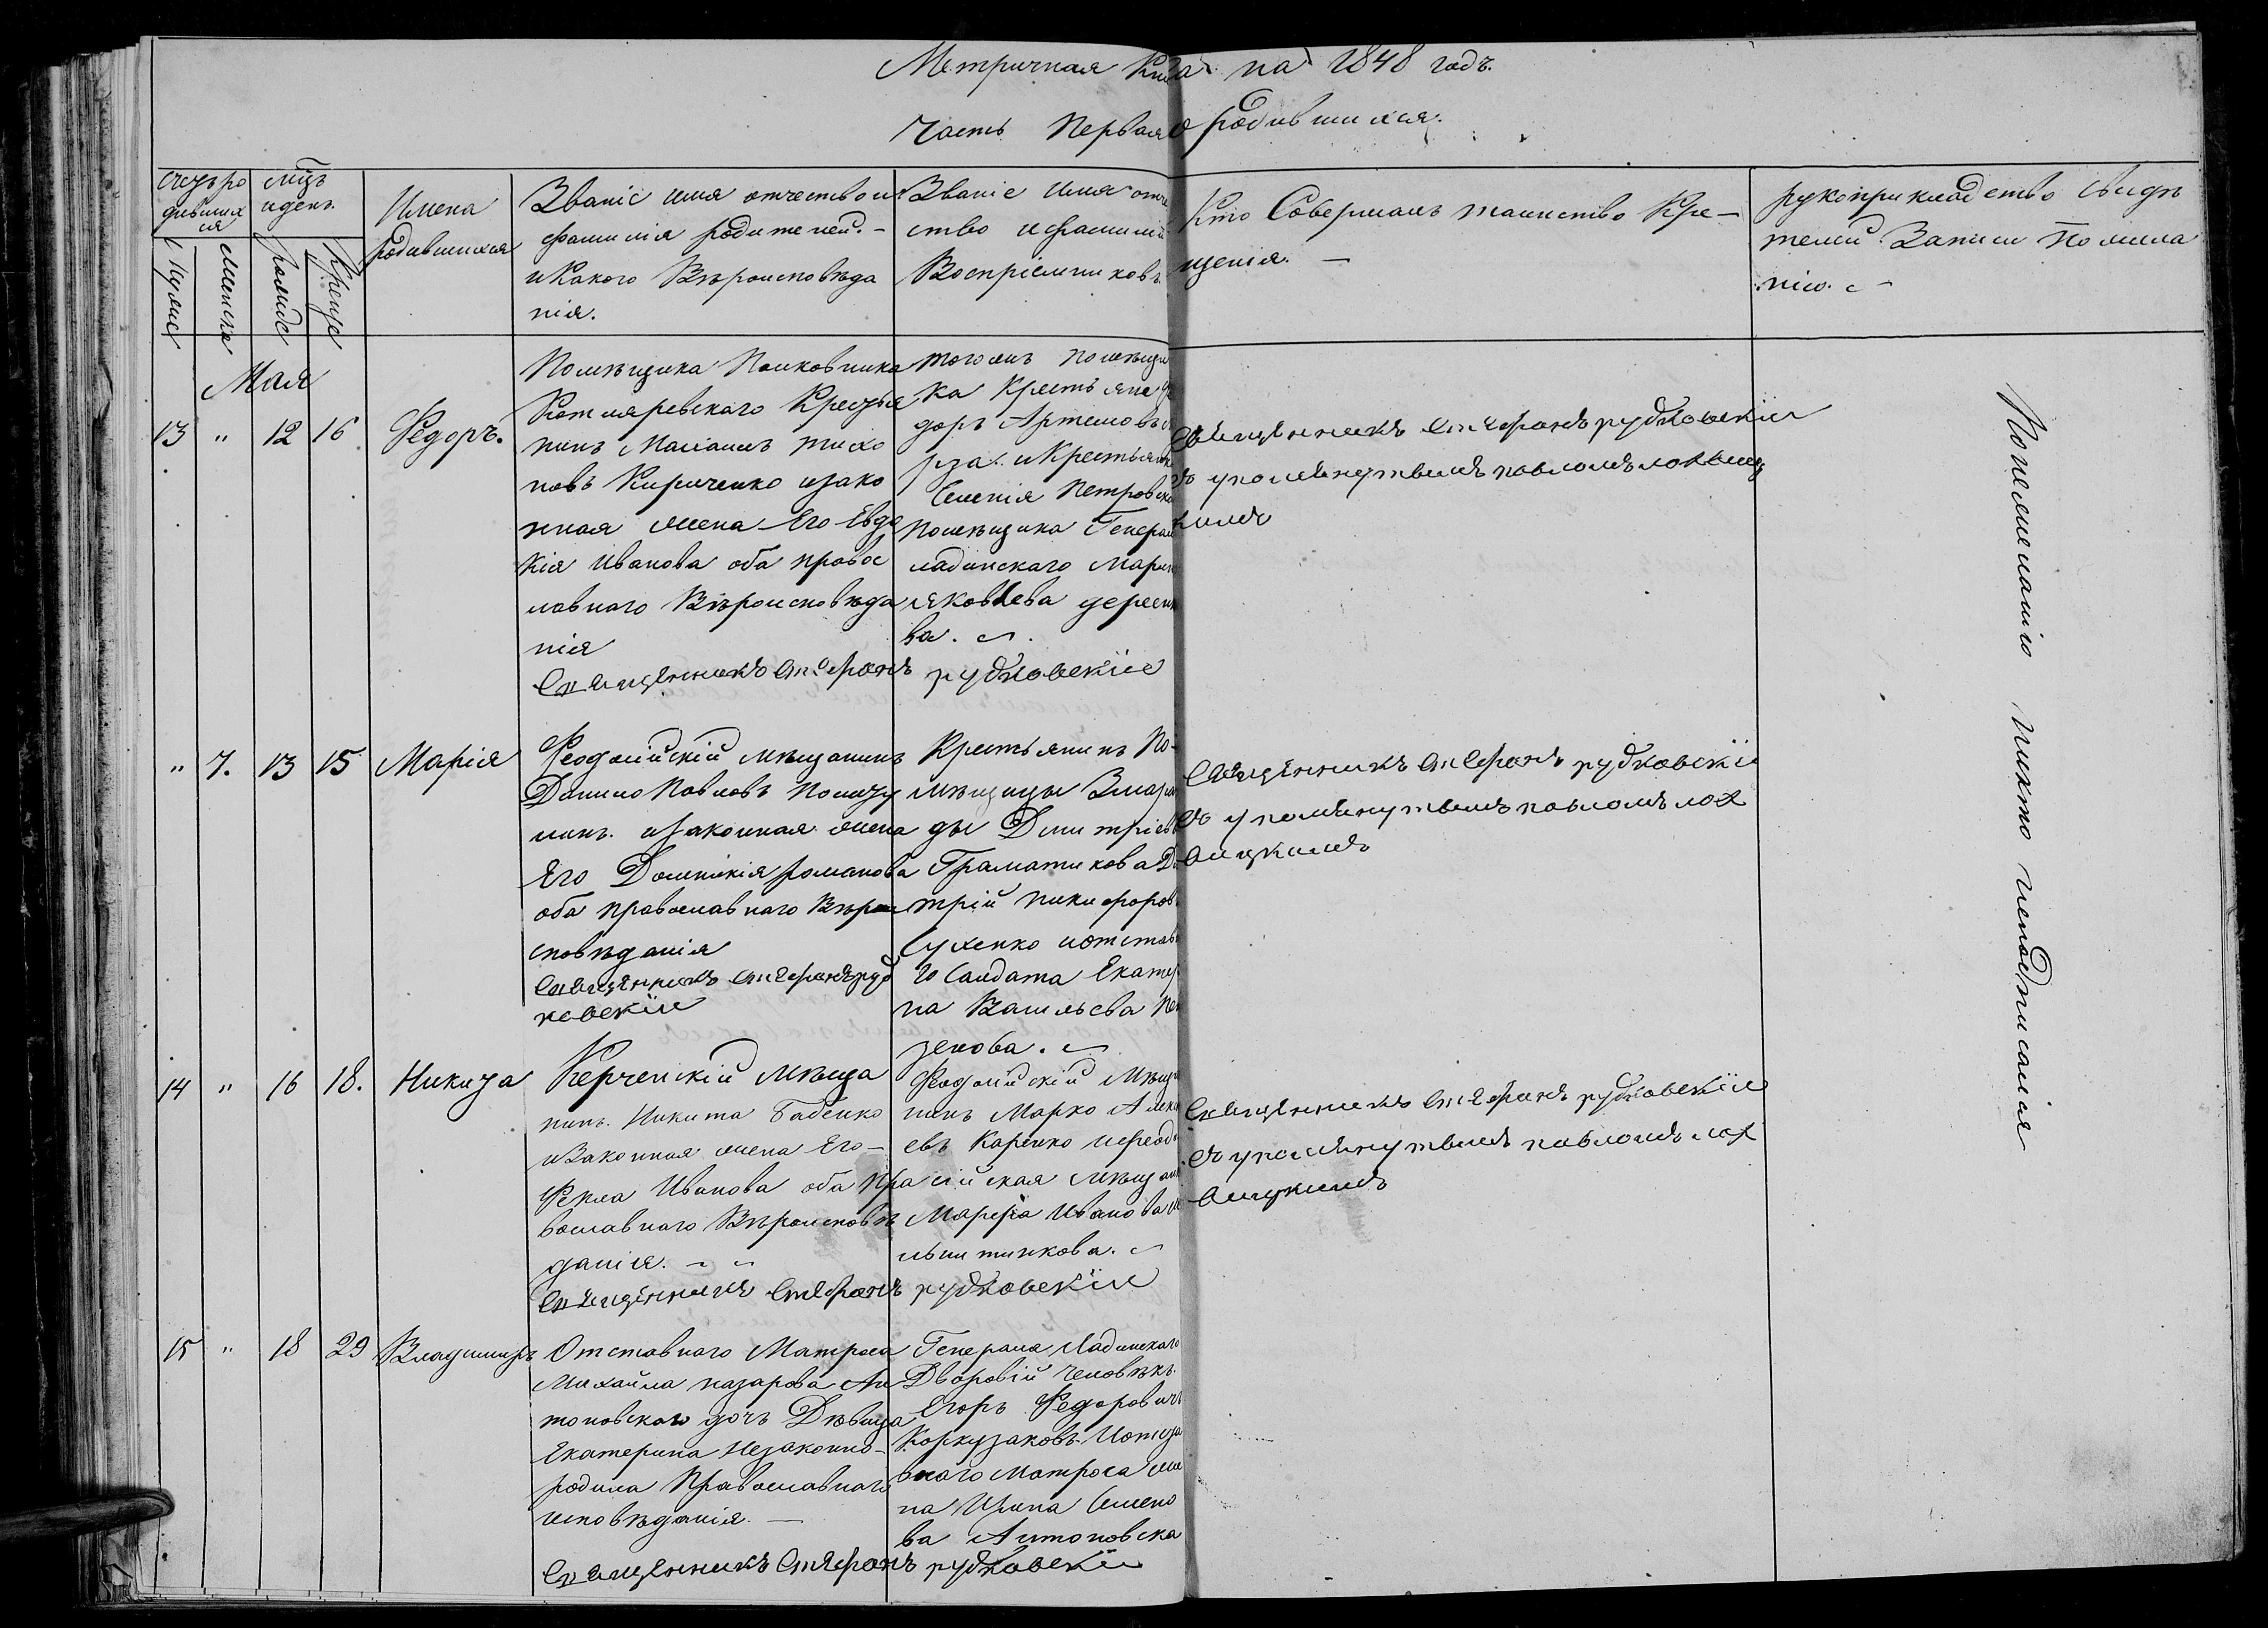 Метричная Книга на 1848 годъ.
Часть Первая о родившихся.
Счетъ ро
дивших
ся
Мужеск
Женска
мцъ
и день
рожде
Креще
Имена
родившихся
Званіе имя отчество и
фамилія родителей. -
и Какого Вѣроисповѣда
нія.
Званіе Имя отче
ство и фамилія
Воспріемниковъ.
Кто Совершалъ таинство Кре-
щенія. -
рукоприкладство свидѣ
телей Записи По жела
нію.
Мая
13 " 12 16 Федоръ.
Помѣщика Полковника
Котляревскаго Крестья
нинъ
новъ Кириченко и зако
нная жена Его Евдо
кія Иванова оба правос
лавнаго Вѣроисповѣда
нія
Священникъ Стефанъ рудковскіи
тогожъ помѣщи
ка Крестьяне Фе
доръ Артемовъ
рза. и Крестьянка
Ксенія Петровска
помѣщика Генерала
ладинскаго Марія
яковлева дерев
ва.
Священникъ Стефанъ рудковскіи
съ упомянутымъ павломъ лохвиц
кимъ
" 7. 13 15 Марія
Феодосійскій мѣщанинъ
Данило Павловъ
нинъ. и законная жена
Его Домникія романова
оба православнаго Вѣрои
сповѣданія
Священникъ Стефанъ руд
ковскіи
Крестьянинъ По-
мѣщицы Змара
ды Дмитріев
Граматикова Дм
трій никифоров
Сухенко и отставн
го Салдата Екате
на Васильева
зенова.
Священникъ Стефанъ рудковскіи
съ упомянутымъ павломъ лох
вицкимъ
14 " 16 18. Никита
Керченскій мѣща
нинъ. Никита Бабенко
и Законная жена Его -
Фекла Иванова оба пра
вославнаго Вѣроисповѣ
данія.
Священникъ Стефанъ рудковскіи
Феодосійскій Мѣща
нинъ Марко Алекс
евъ Каренко и феодо
сійская мѣщан
Марфа Иванова
льнтикова.
Священникъ Стефанъ рудковскіи
съ упомянутымъ павломъ лох
вицкимъ
15 " 18 29 Владимиръ
Отставнаго Матроса
Михайла назарова Ан
тоновскаго дочь Дѣвица
Екатерина Незаконно-
родила Православнаго
исповѣданія. -
Священникъ Стефанъ рудковскіи
Генерала Ладинскаго
Дворовій человѣкъ.
Егоръ Федорович
Коркузаковъ. И отста
внаго матроса же
на Ирина Семено
ва Антоновска
По нежеланію никто неподписался